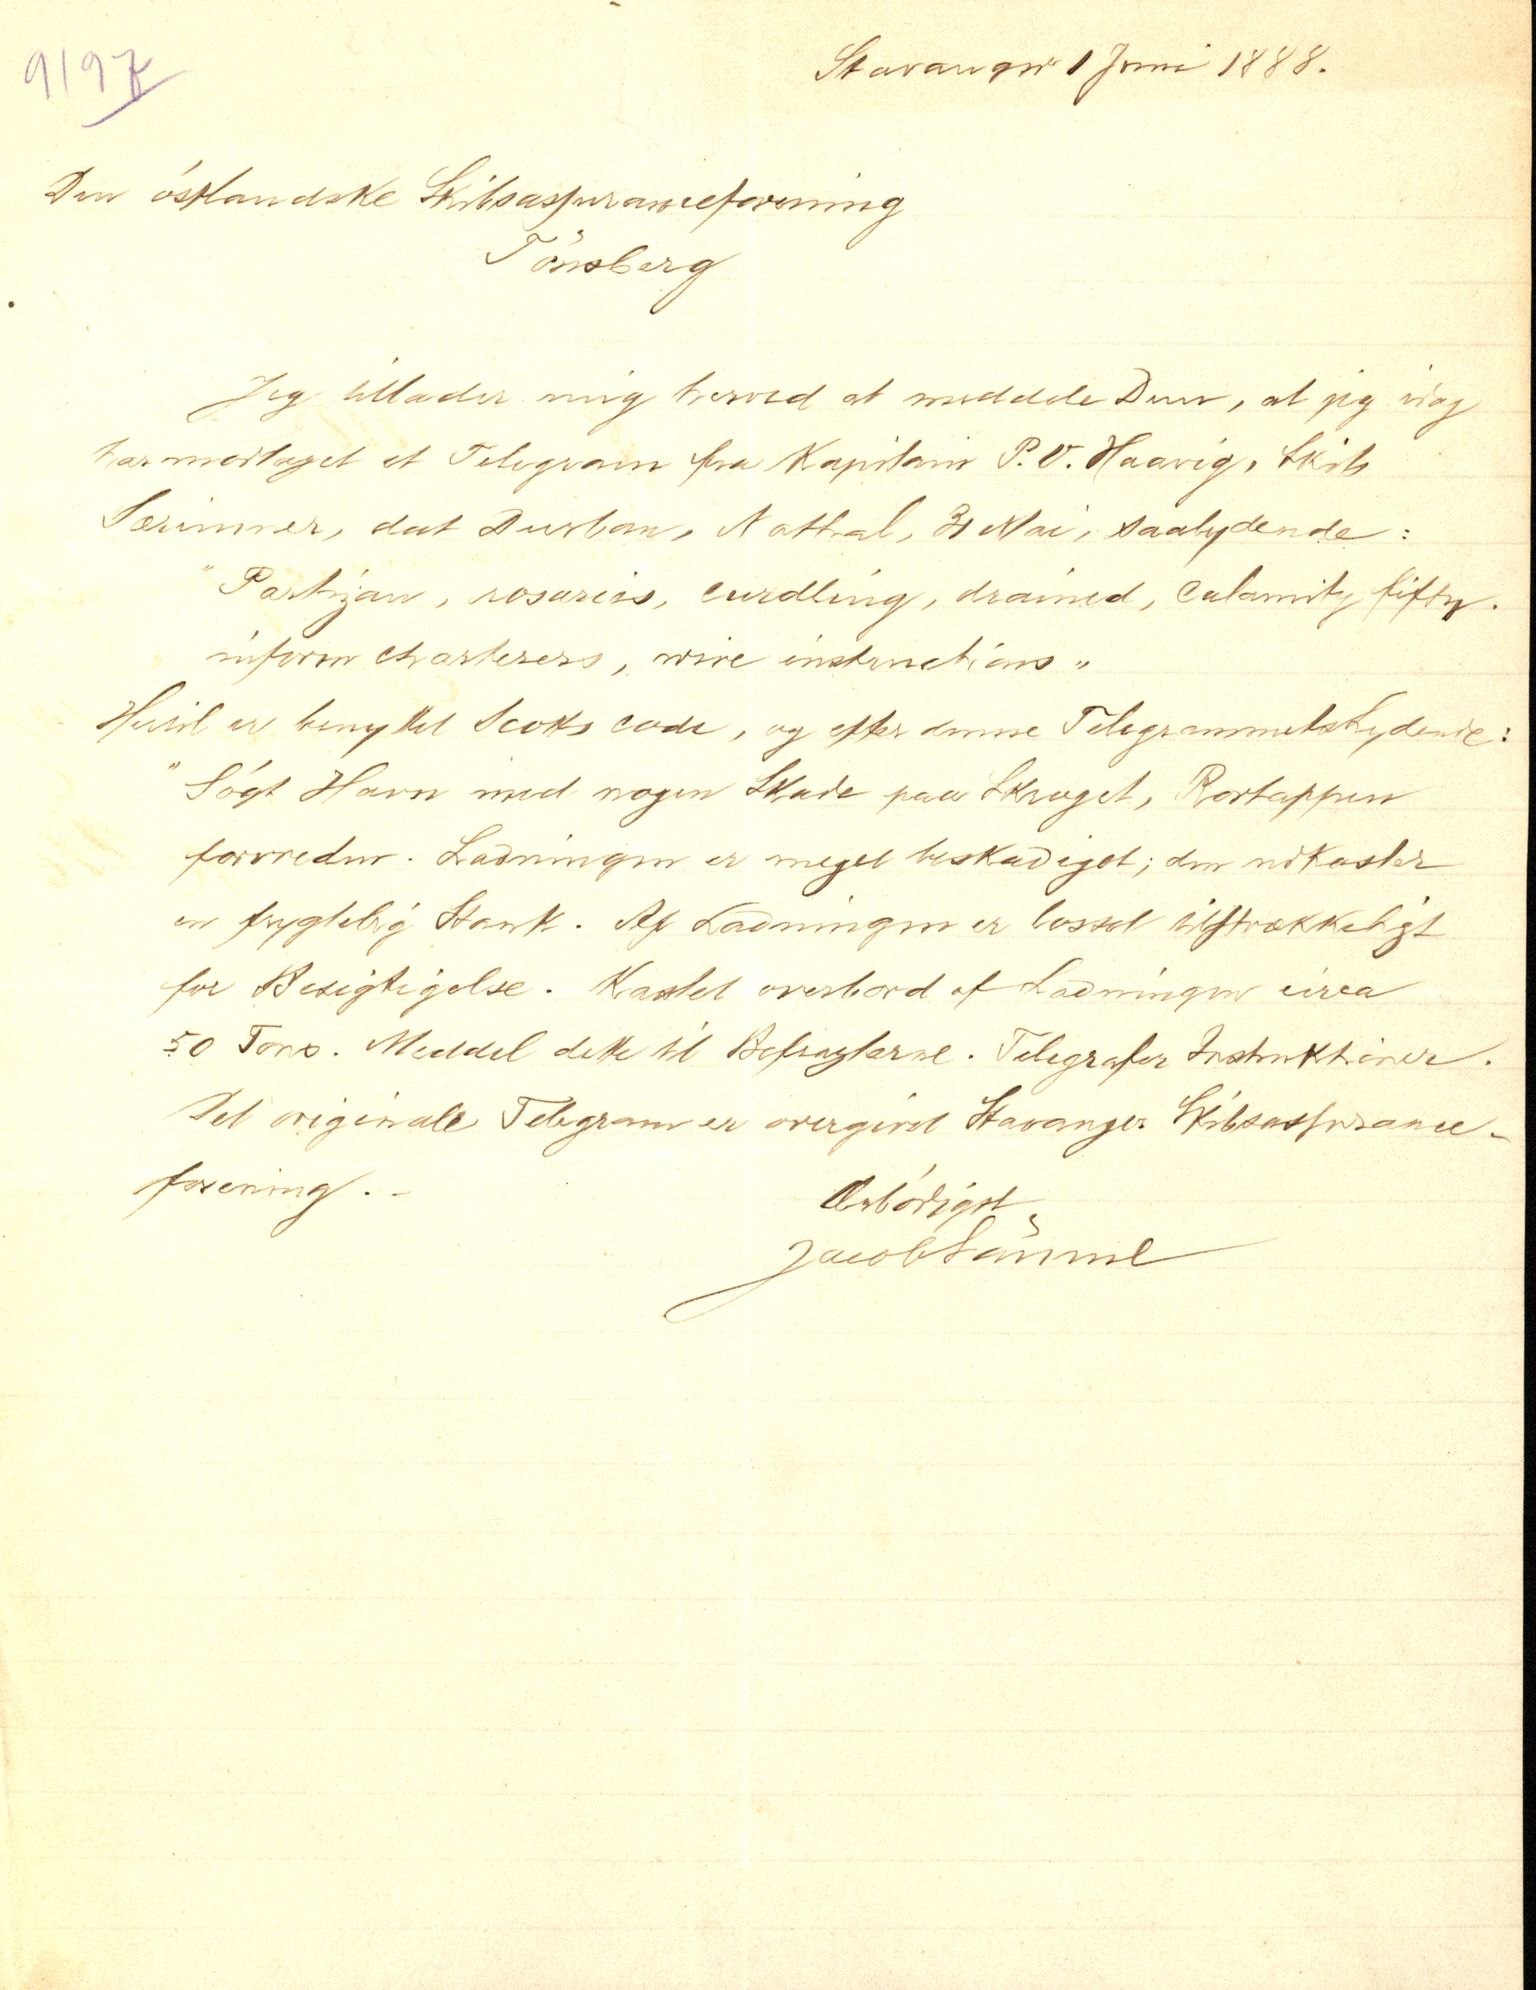 9197
Stavanger 1 Juni 1888.
Den östlandske Skibsassuranceforening
Tönsberg
Jeg tillader mig herved at meddele Dem, at jeg idag
har modtaget et Telegram fra Kaptain P. V. Haavig, Skib
Særimner, dat Durban, Nathal, 31 Mai, saalydende:
"Partizan, rosaries, curdling, drained, calamity fifty.
inform charterers, wire instructions"
Hertil er benyttet Scotts code, og efter denne Telegrammets Lydende:
"Sögt Havn med nogen Skade paa Skroget, Rortappen
forvreden. Ladningen er meget beskadiget; den udkaster
en frygtelig Stank. Af Ladningen er losset tilstrækkeligt
for Besigtigelse. Kastet overbord af Ladningen circa
50 Tons. Meddel dette til Befragterne. Telegrafer Instruktioner.
Det originale Telegram er overgivet Stavanger Skibsassurance-
forening. -
Ærbödigst
Jacob Sömme